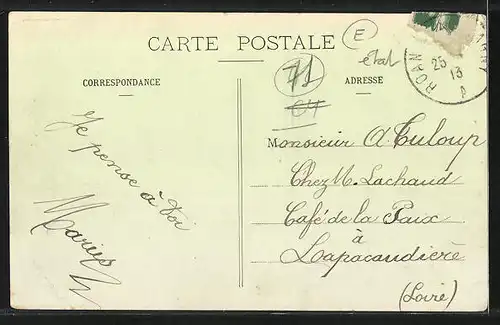 CARTE POSTALE
E
état
71
64
CORRESPONDANCE
ADRESSE
ROAN
25
13
Je pense à toi
Marius
Monsieur A. Tuloup
Chez M. Lachaud
Café de la Paix
à
Lapacaudière
(Loire)